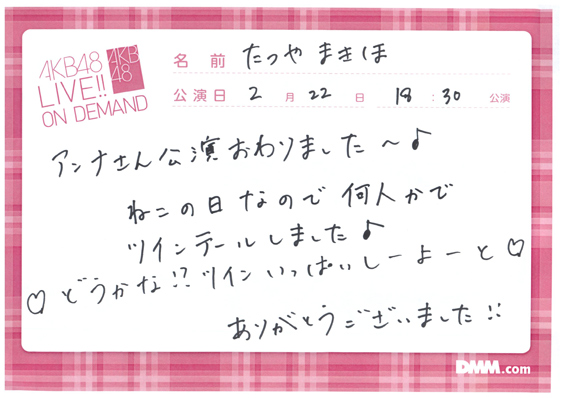 AKB48
LIVE!!
ON DEMAND
AKB
48
名 前 たつや まきほ
公演日 2 月 22 日 18 : 30 公演
アンナさん公演おわりました〜♪
ねこの日なので 何人かで
ツインテールしました♪
♡どうかな!? ツインいっぱいしーよーと♡
ありがとうございました!!
DMM.com